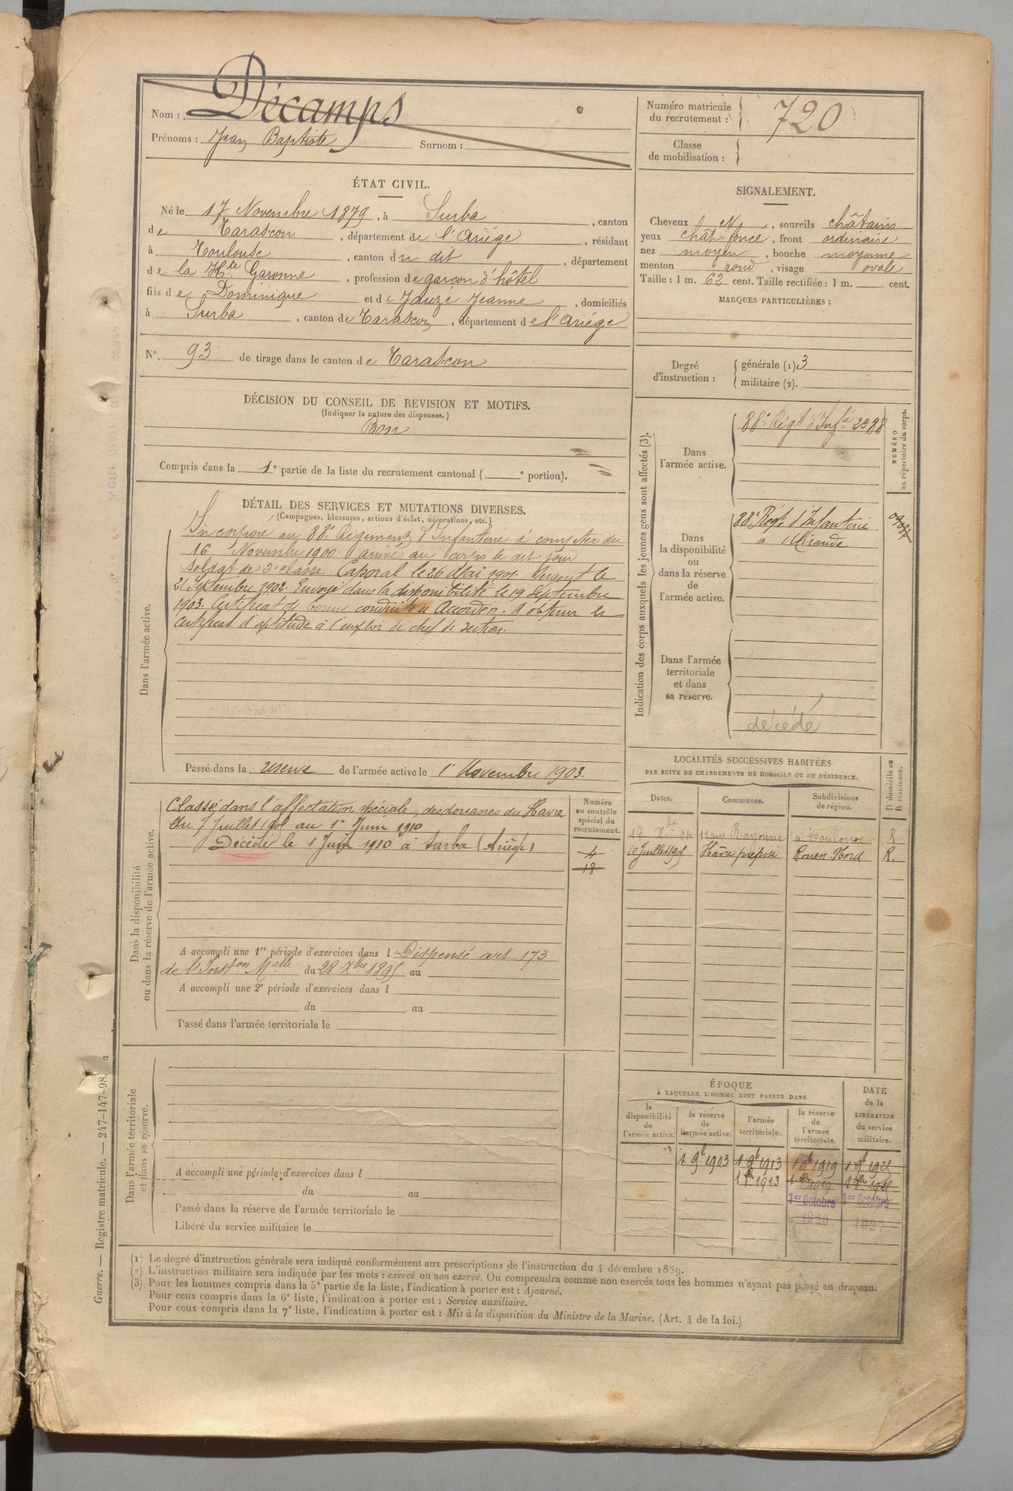 Nom : Décamps
Prénoms : Jean Baptiste Surnom :
Numéro matricule du recrutement : 720
Classe de mobilisation :
ÉTAT CIVIL.
Né le 17 Novembre 1879, à Surba, canton
de Tarascon, département de l'Ariége, résidant
à Toulouse, canton du dit, département
de la Hte Garonne, profession de garçon d'hôtel
fils de Dominique et de Jauze Jeanne, domiciliés
à Surba, canton de Tarascon, département de l'Ariége
N°. 93 de tirage dans le canton de Tarascon
SIGNALEMENT.
Cheveux N, sourcils châtains
yeux chât foncé, front ordinaire
nez moyen, bouche moyenne
menton rond, visage ovale
Taille : 1 m. 62 cent. Taille rectifiée : 1 m. cent.
MARQUES PARTICULIÈRES :
Degré d'instruction : générale (1) 3
militaire (2).
DÉCISION DU CONSEIL DE REVISION ET MOTIFS.
(Indiquer la nature des dispenses.)
Bon
Compris dans la 1e partie de la liste du recrutement cantonal ( e portion).
DÉTAIL DES SERVICES ET MUTATIONS DIVERSES.
(Campagnes, blessures, actions d'éclat, décorations, etc.)
Dans l'armée active.
Incorporé au 88e Régiment d'Infanterie à compter du
16 Novembre 1900 arrivé au corps le dit jour
Soldat de 2e classe. Caporal le 26 Mai 1901. Sergent le
21 Septembre 1902. Envoyé dans la disponibilité le 19 Septembre
1903. Certificat de bonne conduite Accordé. A obtenu le
Certificat d'aptitude à l'emploi de chef de section.
Passé dans la réserve de l'armée active le 1r Novembre 1903.
Indication des corps auxquels les jeunes gens sont affectés (3).
NUMÉRO au répertoire du corps.
Dans l'armée active.
88e Régt d'Infie 2288
Dans la disponibilité ou dans la réserve de l'armée active.
88e Régt d'Infanterie
à Mirande
Dans l'armée territoriale et dans sa réserve.
décédé
Dans la disponibilité ou dans la réserve de l'armée active.
Classé dans l'affectation spéciale, des douanes du Havre
Du 7 Juillet 1905 au 1r Juin 1910
Décédé le 1 Juin 1910 à Surba (Ariège)
Numéro au contrôle spécial du recrutement.
4
18
A accompli une 1re période d'exercices dans l Dispensé art 173
de l'Inston Melle du 28 Xbre 1895 au
A accompli une 2e période d'exercices dans l
du au
Passé dans l'armée territoriale le
LOCALITÉS SUCCESSIVES HABITÉES
PAR SUITE DE CHANGEMENTS DE DOMICILE OU DE RÉSIDENCE.
Dates. Communes. Subdivisions de région. D domicile ou R résidence.
Toulouse R
10 Juillet 1905 Hâvre préposé Rouen Nord R.
Dans l'armée territoriale et dans sa réserve.
A accompli une période d'exercices dans l
du au
Passé dans la réserve de l'armée territoriale le
Libéré du service militaire le
ÉPOQUE
À LAQUELLE L'HOMME DOIT PASSER DANS
la disponibilité de l'armée active.
la réserve de l'armée active.
l'armée territoriale.
la réserve de l'armée territoriale.
DATE de la LIBÉRATION du service militaire.
1 9bre 1903 1 9bre 1913 1 9bre 1919
1er Octobre 1er Octobre
Guerre. — Registre matricule. — 247-147-98.
(1) Le degré d'instruction générale sera indiqué conformément aux prescriptions de l'instruction du 4 décembre 1889.
(2) L'instruction militaire sera indiquée par les mots : exercé ou non exercé. On comprendra comme non exercés tous les hommes n'ayant pas passé au drapeau.
(3) Pour les hommes compris dans la 5e partie de la liste, l'indication à porter est : Ajourné.
Pour ceux compris dans la 6e liste, l'indication à porter est : Service auxiliaire.
Pour ceux compris dans la 7e liste, l'indication à porter est : Mis à la disposition du Ministre de la Marine. (Art. 4 de la loi.)